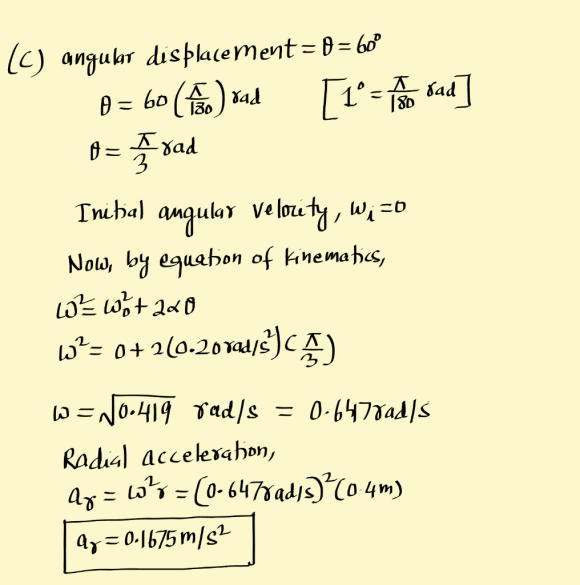 (C) angular displacement = θ = 60°
θ = 60 (π/180) rad [1° = π/180 rad]
θ = π/3 rad
Initial angular velocity, ωi = 0
Now, by equation of kinematics,
ω² = ω₀² + 2αθ
ω² = 0 + 2(0.20 rad/s²)(π/3)
ω = √0.419 rad/s = 0.647 rad/s
Radial acceleration,
ar = ω²r = (0.647 rad/s)²(0.4m)
ar = 0.1675 m/s²